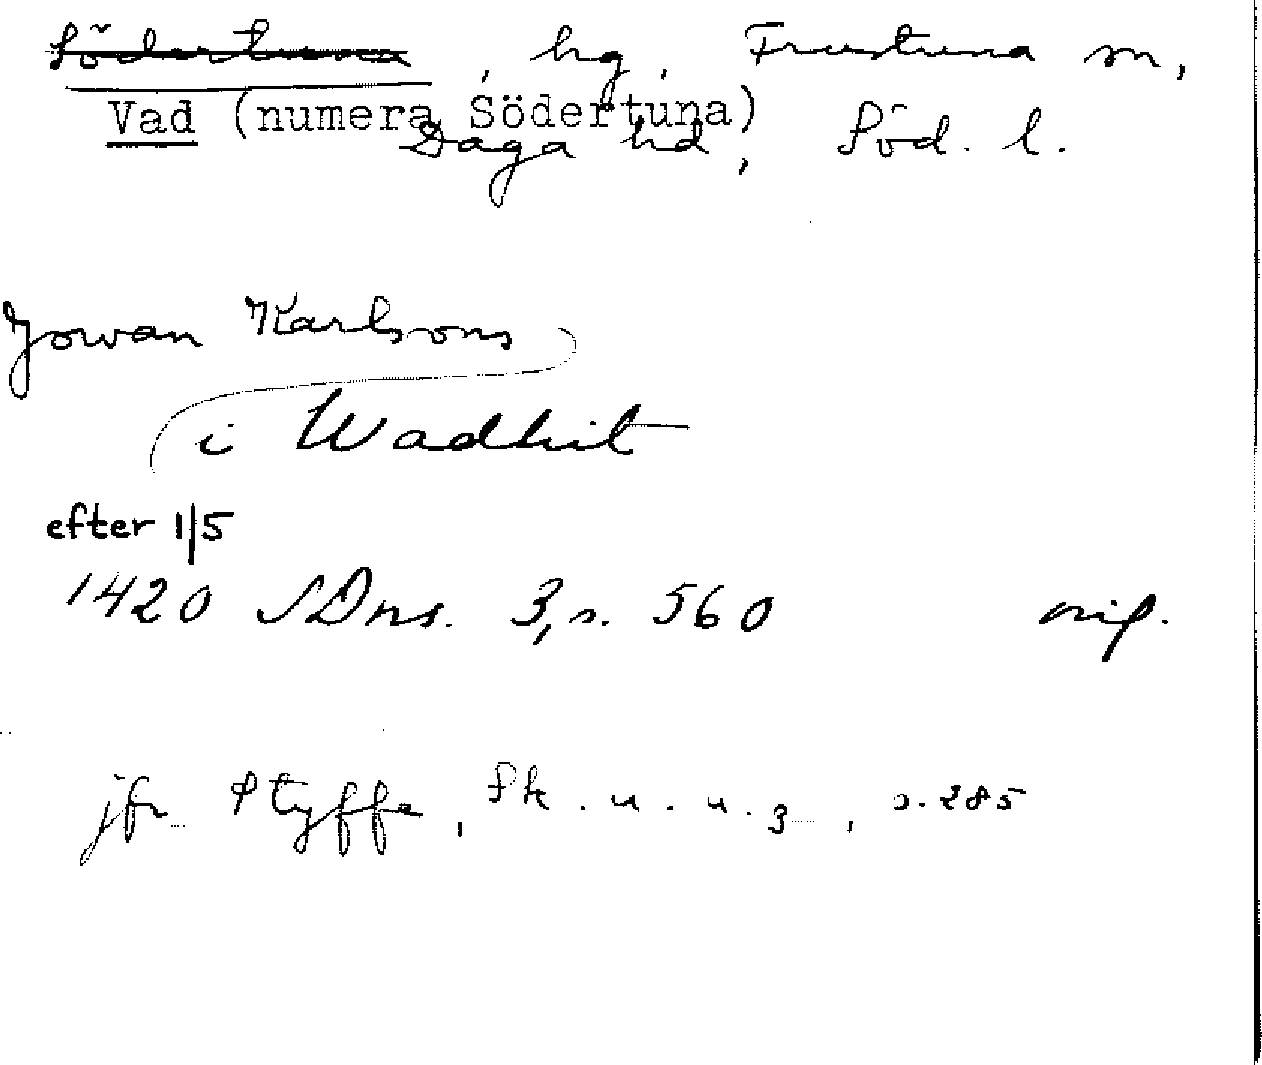 Södertuna, hg, Frustuna sn,
Vad (numera Södertuna)
Daga hd, Söd. l.
Jowan Karlsons
i Wadhit
efter 1/5
1420 SDns. 3, s. 560 orig.
jfr Styffe, Sk. u. u. 3, s. 285